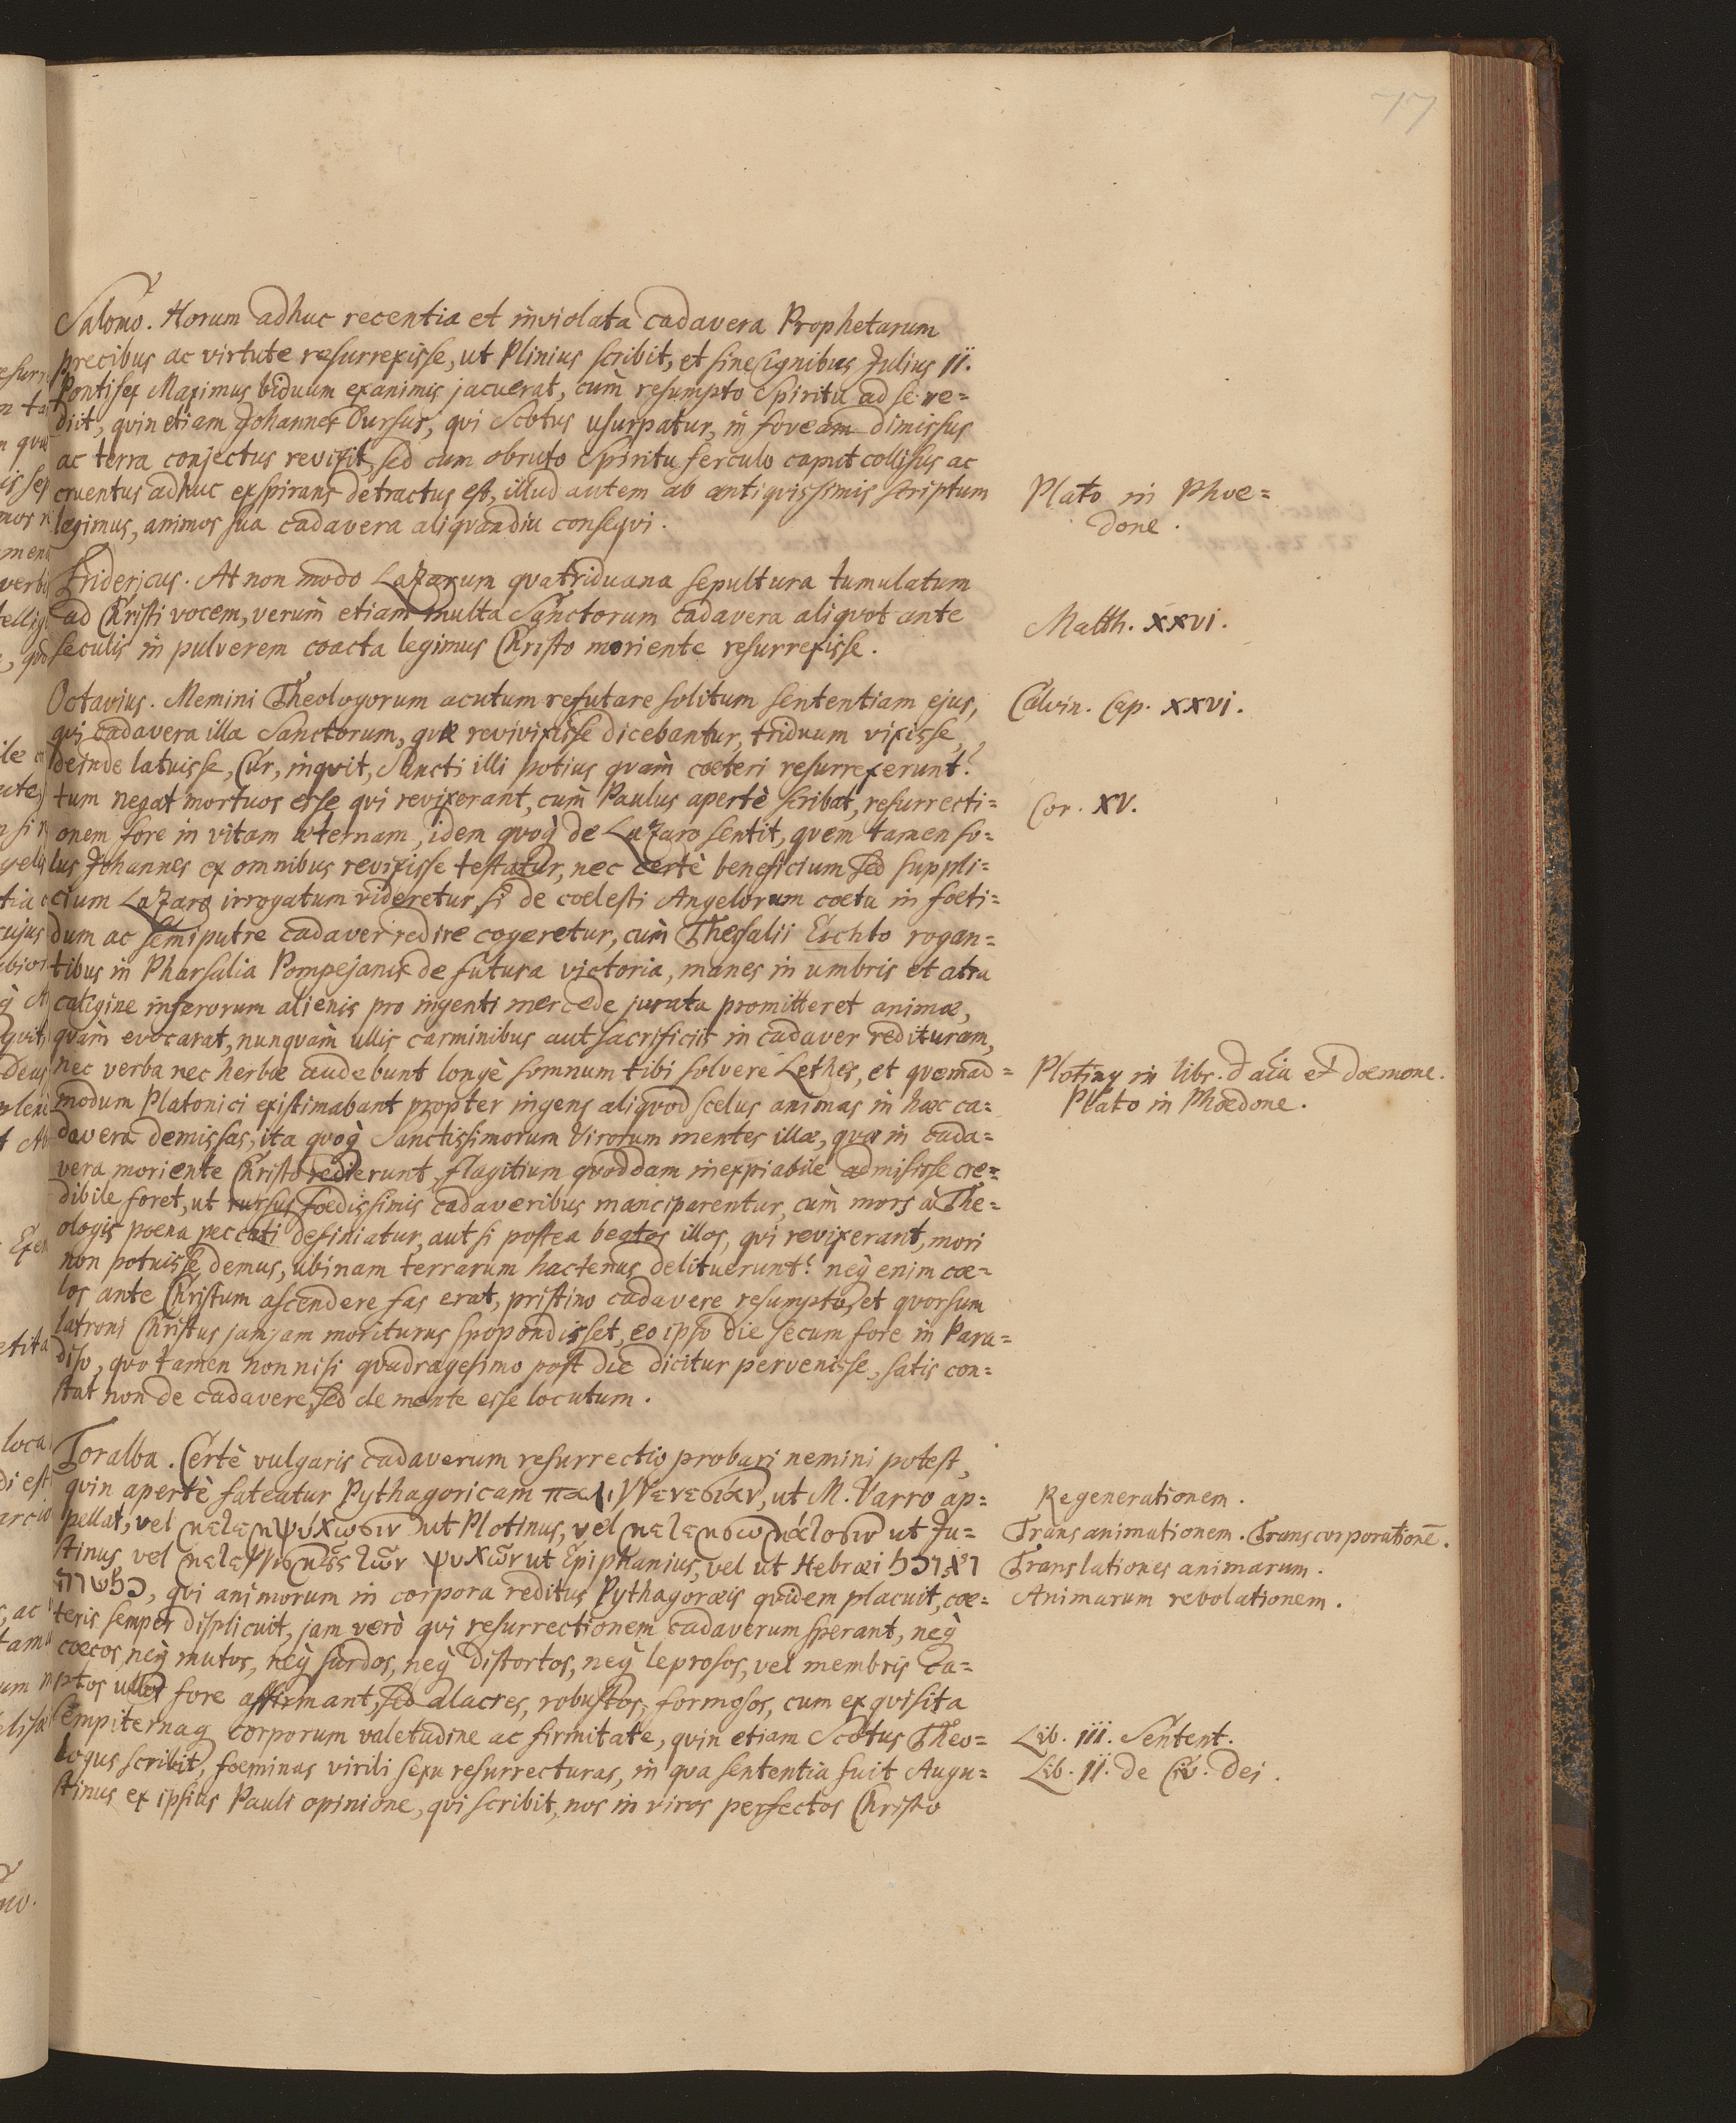 77
Salomo. Horum adhuc recentia et inviolata cadavera Prophetarum
precibus ac virtute resurrexisse, ut Plinius scribit, et sine signibus Julius II.
Pontifex Maximus biduum exanimis jacuerat, cum̀ resumpto Spiritu ad se re=
diit, quin etiam Johannes Dursus, qui Scotus usurpatur, in foveam dimissus
ac terra conjectus revixit, sed cum obruto Spiritu ferculo caput collisus ac
cruentus adhuc exspirans detractus est, illud autem ab antiquissimis scriptum
legimus, animos sua cadavera aliquandiu consequi.
Plato in Phoe=
done.
Fridericus. At non modo Lazarum quatriduana sepultura tumulatum
ad Christi vocem, verum̀ etiam multa Sanctorum cadavera aliquot ante
seculis in pulverem coacta legimus Christo moriente resurrexisse.
Matth. XXVI.
Octavius. Memini Theologorum acutum refutare solitum sententiam ejus,
qui cadavera illa Sanctorum, quæ revivixisse dicebantur, triduum vixisse,
deinde latuisse, Cur, inquit, Sancti illi potius quam̀ coeteri resurrexerunt?
tum negat mortuos esse qui revixerant, cum̀ Paulus apertè scribat, resurrecti=
onem fore in vitam æternam, idem quoq̀ de Lazaro sentit, quem tamen so=
lus Johannes ex omnibus revixisse testatur, nec certè beneficium sed suppli=
cium Lazaro irrogatum videretur, si de coelesti Angelorum coetu in foeti=
dum ac semiputre cadaver redire cogeretur, cum̀ Thessalii Erichto rogan=
tibus in Pharsalia Pompejanis de futura victoria, manes in umbris et atra
caligine inferorum alienis pro ingenti mercede jurata promitteret animæ,
quam̀ evocarat, nunquam̀ ullis carminibus aut sacrificiis in cadaver redituram,
nec verba nec herbæ audebunt longè somnum tibi solvere Lethes, et quemad=
modum Platonici existimabant propter ingens aliquod scelus animas in hæc ca=
davera demissas, ita quoq̀ Sanctissimorum Virorum mentes illæ, quæ in cada=
vera moriente Christo redierunt, flagitium quoddam inexpiabile admisisse cre=
dibile foret, ut rursus foedissimis cadaveribus manciparentur, cum̀ mors à The=
ologis poena peccati definiatur, aut si postea beatos illos, qui revixerant, mori
non potuisse demus, ubinam terrarum hactenus delituerunt? neq̀ enim coe=
los ante Christum ascendere fas erat, pristino cadavere resumpto, et quorsum
latroni Christus jamjam moriturus spopondisset, eo ipso die secum fore in Para=
diso, quo tamen non nisi quadragesimo post die dicitur pervenisse, satis con=
stat non de cadavere, sed de mente esse locutum.
Calvin. Cap. XXVI.
Cor. XV.
Plotiny in libr. et doemone.
Plato in Phoedone.
Toralba. Certè vulgaris cadaverum resurrectio probari nemini potest,
quin apertè fateatur Pythagoricam παλιγγενεσίαν, ut M. Varro ap=
pellat, vel ut Plotinus, vel ut Ju=
stinus, vel ψυχῶν ut Epiphanius, vel ut Hebræi
, qui animorum in corpora reditus Pythagoræis quidem placuit, coe=
teris semper displicuit, jam verò qui resurrectionem cadaverum sperant, neq̀
coecos, neq̀ mutos, neq̀ surdos, neq̀ distortos, neq̀ leprosos, vel membris ca=
ptos ullos fore affirmant, sed alacres, robustos, formosos, cum exquisita
sempiternaq corporum valetudine ac firmitate, quin etiam Scotus Theo=
logus scribit, foeminas virili sexu resurrecturas, in qua sententia fuit Augu=
stinus ex ipsius Pauli opinione, qui scribit, nos in viros perfectos Christo
Regenerationem.
Transanimationem. Transcorporationē.
Translationes animarum.
Animarum revolationem.
Lib. III. Sentent.
Lib. II. de Civ. dei.